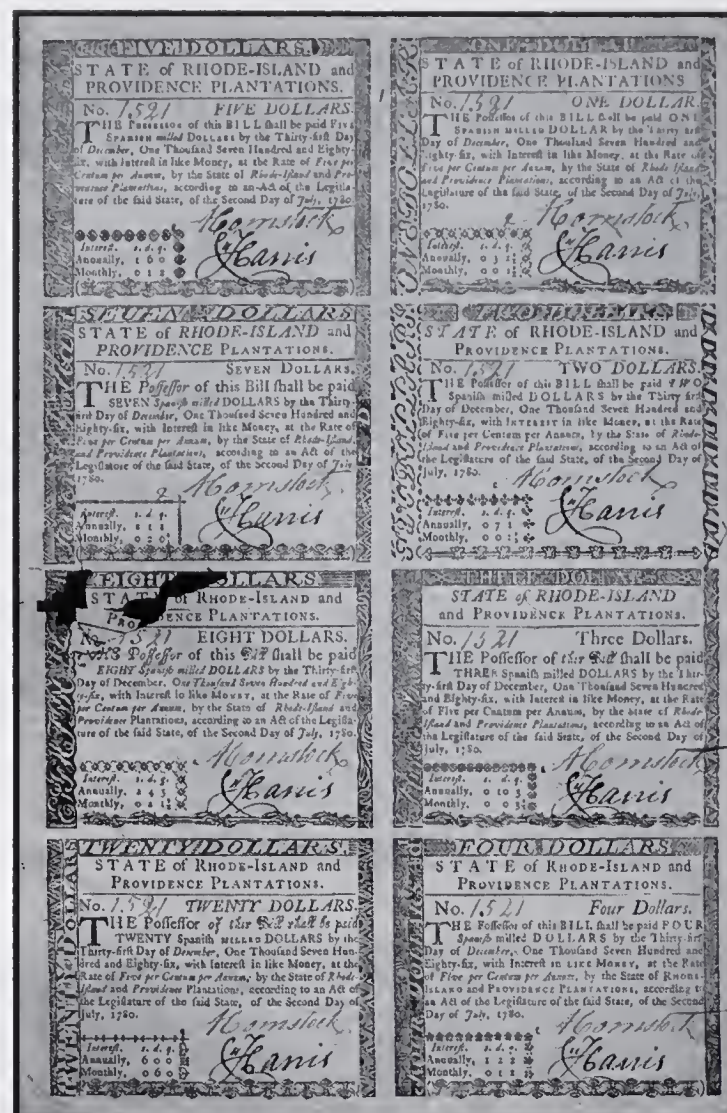 FIVE DOLLARS.
STATE of RHODE-ISLAND and
PROVIDENCE PLANTATIONS.
No. 1521 FIVE DOLLARS.
THE Possessor of this BILL shall be paid FIVE
SPANISH milled DOLLARS by the Thirty-first Day
of December, One Thousand Seven Hundred and Eighty-
six, with Interest in like Money, at the Rate of Five per
Centum per Annum, by the State of Rhode-Island and Pro-
vidence Plantations, according to an Act of the Legisla-
ture of the said State, of the Second Day of July, 1780.
AComstock
Interest. s. d. q.
Annually, 1 6 0
Monthly, 0 1 2
J Harris
SEVEN DOLLARS
STATE of RHODE-ISLAND and
PROVIDENCE PLANTATIONS.
No. 1521 SEVEN DOLLARS.
THE Possessor of this Bill shall be paid
SEVEN Spanish milled DOLLARS by the Thirty-
first Day of December, One Thousand Seven Hundred and
Eighty-six, with Interest in like Money, at the Rate of
Five per Centum per Annum, by the State of Rhode-Island,
and Providence Plantations, according to an Act of the
Legislature of the said State, of the Second Day of July
1780.
AComstock
Interest. s. d. q.
Annually, 2 1 1
Monthly, 0 2 0
J Harris
EIGHT DOLLARS
STATE of RHODE-ISLAND and
PROVIDENCE PLANTATIONS.
No. 1521 EIGHT DOLLARS.
THE Possessor of this Bill shall be paid
EIGHT Spanish milled DOLLARS by the Thirty-first
Day of December, One Thousand Seven Hundred and Eigh-
ty-six, with Interest in like MONEY, at the Rate of Five
per Centum per Annum, by the State of Rhode-Island and
Providence Plantations, according to an Act of the Legisla-
ture of the said State, of the Second Day of July, 1780.
AComstock
Interest. s. d. q.
Annually, 2 4 3
Monthly,
J Harris
TWENTY DOLLARS
TWENTY DOLLARS.
STATE of RHODE-ISLAND and
PROVIDENCE PLANTATIONS.
No. 1521 TWENTY DOLLARS.
THE Possessor of this Bill shall be paid
TWENTY Spanish MILLED DOLLARS by the
Thirty-first Day of December, One Thousand Seven Hun-
dred and Eighty-six, with Interest in like Money, at the
Rate of Five per Centum per Annum, by the State of Rhode-
Island and Providence Plantations, according to an Act of
the Legislature of the said State, of the Second Day of
July, 1780.
AComstock
Interest. s. d. q.
Annually, 6 0 0
Monthly, 0 6 0
J Harris
ONE DOLLAR
STATE of RHODE-ISLAND and
PROVIDENCE PLANTATIONS
No. 1521 ONE DOLLAR.
THE Possessor of this BILL shall be paid ONE
SPANISH MILLED DOLLAR by the Thirty first
Day of December, One Thousand Seven Hundred and
Eighty-six, with Interest in like Money, at the Rate of
Five per Centum per Annum, by the State of Rhode Island
and Providence Plantations, according to an Act of the
Legislature of the said State, of the Second Day of July,
1780.
AComstock
Interest. s. d. q.
Annually, 0 3 2
Monthly, 0 0 1
J Harris
TWO DOLLARS
TWO DOLLARS
STATE of RHODE-ISLAND and
PROVIDENCE PLANTATIONS.
No. 1521 TWO DOLLARS.
THE Possessor of this BILL shall be paid TWO
Spanish milled DOLLARS by the Thirty first
Day of December, One Thousand Seven Hundred and
Eighty-six, with INTEREST in like Money, at the Rate
of Five per Centum per Annum, by the State of Rhode-
Island and Providence Plantations, according to an Act of
the Legislature of the said State, of the Second Day of
July, 1780.
AComstock
Interest. s. d. q.
Annually, 0 7 1
Monthly, 0 0 2
J Harris
THREE DOLLARS
STATE of RHODE-ISLAND
and PROVIDENCE PLANTATIONS.
No. 1521 Three Dollars.
THE Possessor of this Bill shall be paid
THREE Spanish milled DOLLARS by the Thir-
ty-first Day of December, One Thousand Seven Hundred
and Eighty-six, with Interest in like Money, at the Rate
of Five per Centum per Annum, by the State of Rhode-
Island and Providence Plantations, according to an Act of
the Legislature of the said State, of the Second Day of
July, 1780.
AComstock
Interest. s. d. q.
Annually, 0 10 3
Monthly, 0 0 3
J Harris
FOUR DOLLARS
STATE of RHODE-ISLAND and
PROVIDENCE PLANTATIONS.
No. 1521 Four Dollars.
THE Possessor of this BILL shall be paid FOUR
Spanish milled DOLLARS by the Thirty-first
Day of December, One Thousand Seven Hundred and
Eighty-six, with Interest in LIKE MONEY, at the Rate
of Five per Centum per Annum, by the State of RHODE-
ISLAND and PROVIDENCE PLANTATIONS, according to
an Act of the Legislature of the said State, of the Second
Day of July, 1780.
AComstock
Interest. s. d. q.
Annually, 1 2 2
Monthly, 0 1 1
J Harris